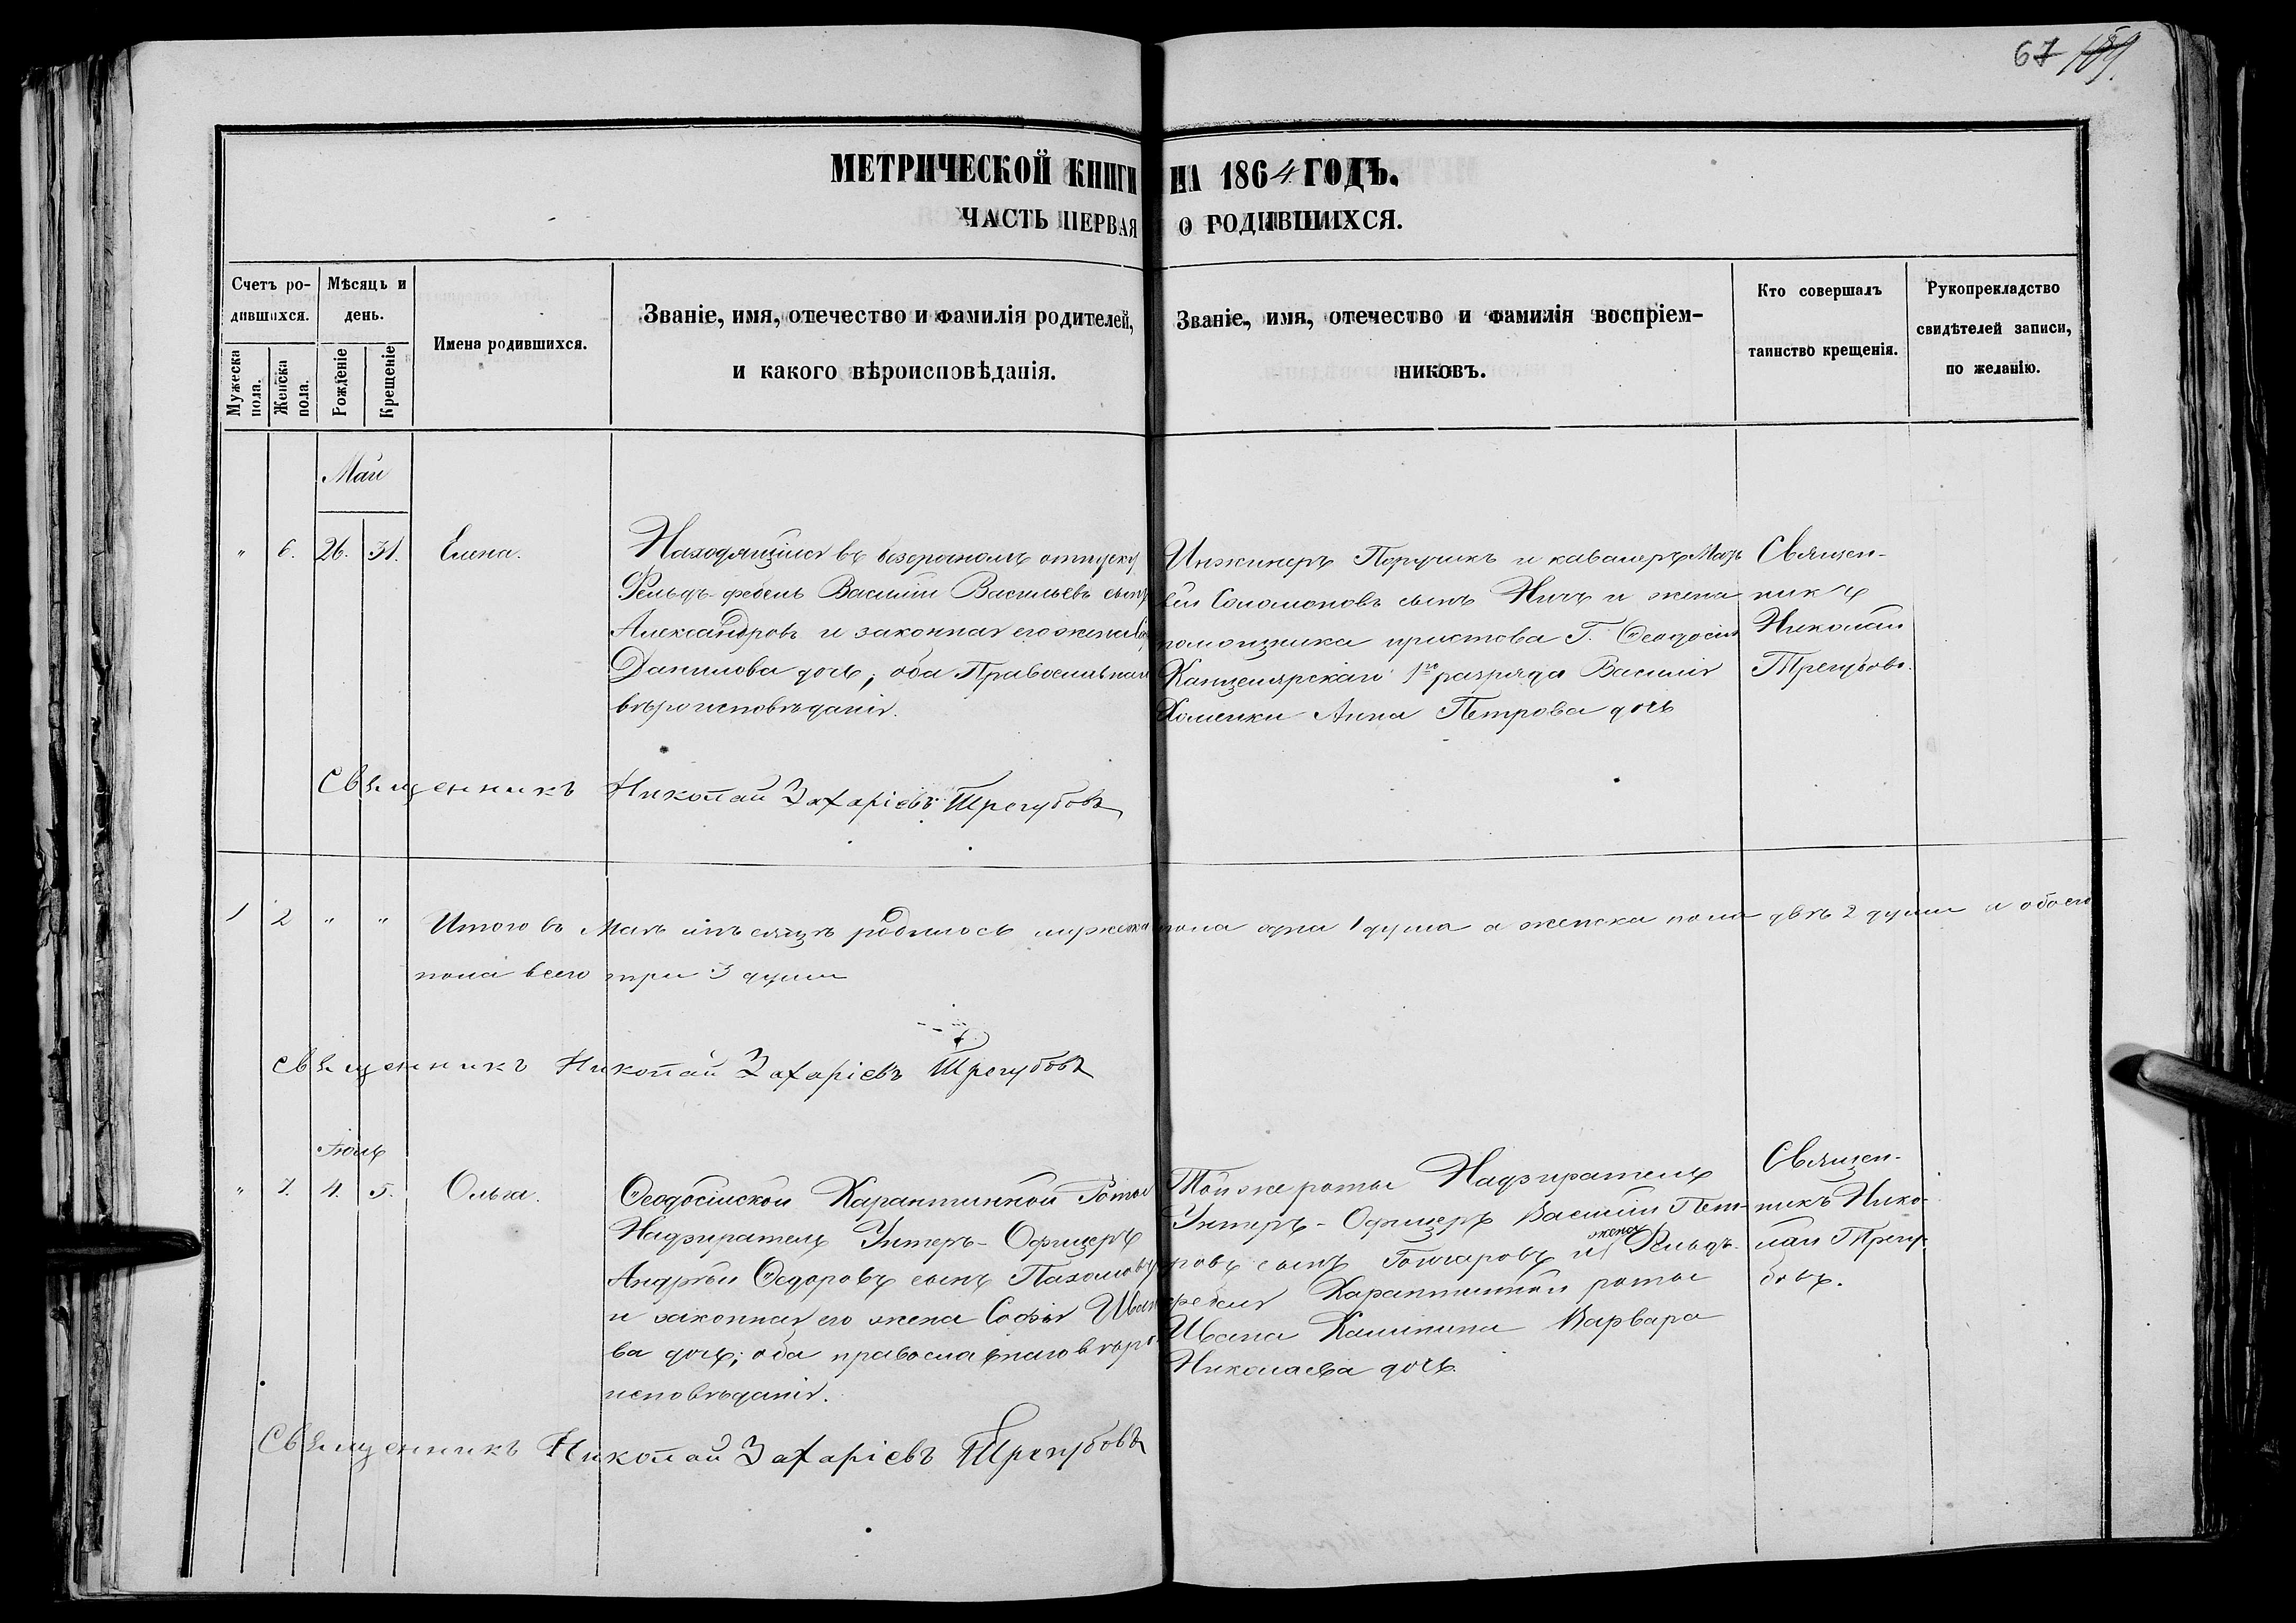 67 189
МЕТРИЧЕСКОЙ КНИГИ НА 1864 ГОДЪ.
ЧАСТЬ ПЕРВАЯ О РОДИВШИХСЯ.
Счетъ родившихся.
Мужеска пола.
Женска пола.
Мѣсяцъ и день.
Рожденіе
Крещеніе
Имена родившихся.
Званіе, имя, отечество и фамилія родителей,
и какого вѣроисповѣданія.
Званіе, имя, отечество и фамилія воспріем-
никовъ.
Кто совершалъ
таинство крещенія.
Рукоприкладство
свидѣтелей записи,
по желанію.
Май
" 6. 26. 31. Елена.
Находящійся въ безсрочномъ отпуску
Фельдфебель Василій Васильевъ сынъ
Александровъ и законная его жена
Данилова дочь; оба Православнаго
вѣроисповѣданія.
Инжинеръ Поручикъ и кавалеръ
Соломоновъ сынъ Ничъ и жена
помощника пристава Г. Ѳеодосіи
Канцелярскаго 1го разряда Василія
Хоменки Анна Петрова дочь
Священ-
никъ
Николай
Трегубовъ.
Священникъ Николай Захаріевъ Трегубовъ
1 2 " " Итого въ Маѣ мѣсяцѣ родилось мужеска пола одна 1 душа а женска пола двѣ 2 души а обоего
пола всего три 3 души
Священникъ Николай Захаріевъ Трегубовъ
Іюнь
" 7. 4. 5. Ольга.
Ѳеодосійской Карантинной Роты
Надзиратель Унтеръ-Офицеръ
Андрей Ѳедоровъ сынъ Пахомовъ
и законная его жена Софія Ивано
ва дочь; оба православнаго вѣро
исповѣданія.
Той же роты Надзиратель
Унтеръ-Офицеръ Василій Пет-
ровъ сынъ Гончаровъ и жена Фельд-
фебеля Карантинной роты
Ивана Калинина Варвара
Николаева дочь.
Священ-
никъ Нико-
лай Трегу-
бовъ.
Священникъ Николай Захаріевъ Трегубовъ